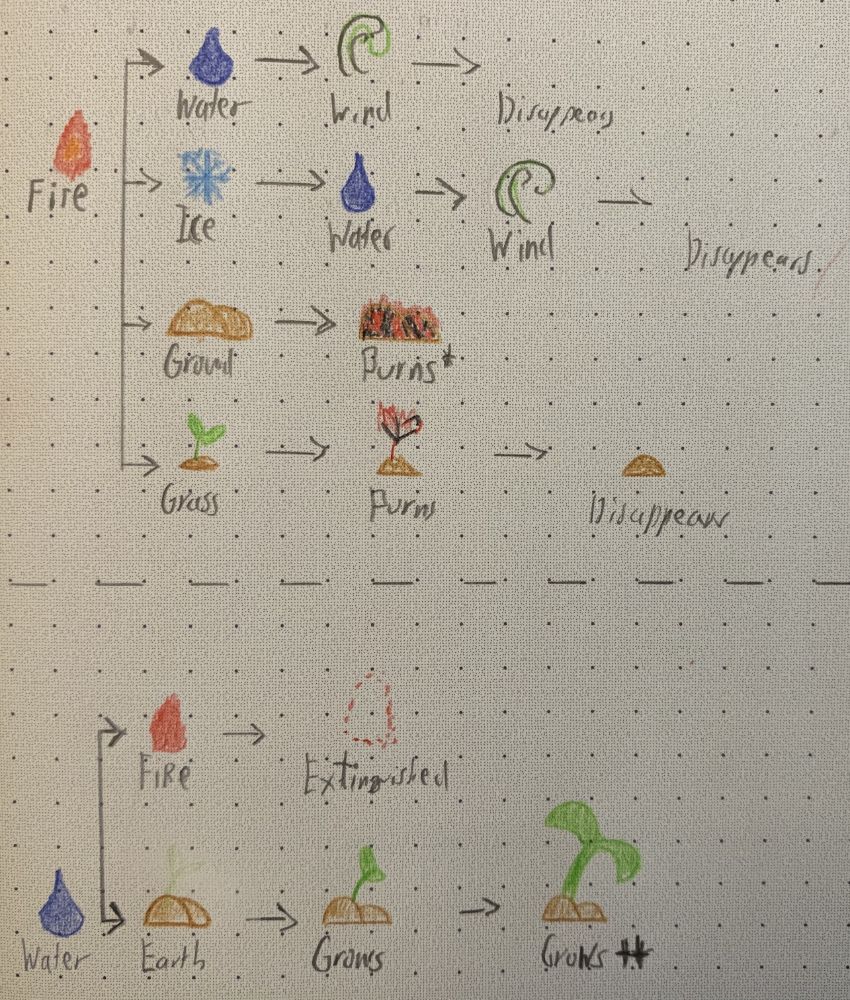 Water
Wind
Disappears
Fire
Ice
Water
Wind
Disappears
Ground
Burns*
Grass
Burns
Disappears
FIRe
Extinguished
Water
Earth
Grows
Grows #